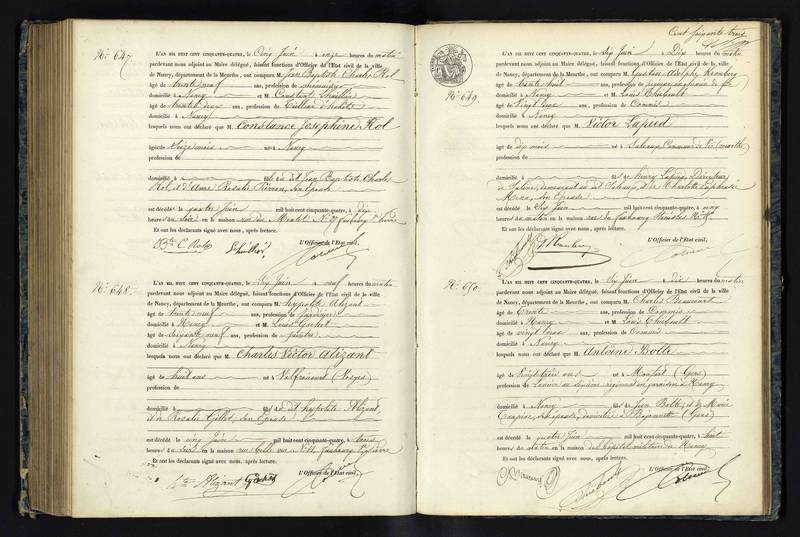 N° 647.
L'AN MIL HUIT CENT CINQUANTE-QUATRE, le Cinq Juin à onze heures du matin
pardevant nous adjoint au Maire délégué, faisant fonctions d'Officier de l'Etat civil de la ville
de Nancy, département de la Meurthe, ont comparu M. Jean Baptiste Charles Kol
âgé de trente neuf ans, profession de
domicilié à Nancy et M. Constant
âgé de trente deux ans, profession de Tailleur d'habits
domicilié à Nancy
lesquels nous ont déclaré que M. Constance Joséphine Kol
âgée de Seize mois née à Nancy
profession de
domicilié à fille du dit Jean Baptiste Charles
Kol, et d'Anne Rosalie son Epouse
est décédée le quatre Juin mil huit cent cinquante-quatre, à dix
heures du soir en la maison rue du Montet N° faubourg St Pierre
Et ont les déclarants signé avec nous, après lecture.
L'Officier de l'Etat civil,
N° 648.
L'AN MIL HUIT CENT CINQUANTE-QUATRE, le Six Juin à neuf heures du matin
pardevant nous adjoint au Maire délégué, faisant fonctions d'Officier de l'Etat civil de la ville
de Nancy, département de la Meurthe, ont comparu M. hypolite Alizant
âgé de trente neuf ans, profession de Jardinier
domicilié à Nancy et M. Louis
âgé de Soixante neuf ans, profession de peintre
domicilié à Nancy
lesquels nous ont déclaré que M. Charles Victor Alizant
âgé de huit ans né à Valfroicourt (Vosges)
profession de
domicilié à fils du dit hypolite Alizant,
et de Rosalie Gillot, son Epouse
est décédé le cinq Juin mil huit cent cinquante-quatre, à trois
heures du soir en la maison rue N° faubourg St Pierre
Et ont les déclarants signé avec nous, après lecture.
L'Officier de l'Etat civil,
Alizant
Cent soixante trois
N° 649.
L'AN MIL HUIT CENT CINQUANTE-QUATRE, le Six Juin à Dix heures du matin
pardevant nous adjoint au Maire délégué, faisant fonctions d'Officier de l'Etat civil de la ville
de Nancy, département de la Meurthe, ont comparu M. Gustave Adolphe Kronberg
âgé de trente huit ans, profession de
domicilié à Nancy et M. Louis Thiebault
âgé de Vingt trois ans, profession de Commis
domicilié à Nancy
lesquels nous ont déclaré que M. Victor Lapied
âgé de dix mois né à Commune de Vic (meurthe)
profession de
domicilié à fils de henry Lapied, Directeur
de Saline, demeurant au dit et de Charlotte Euphrasie
son Epouse
est décédé le Six Juin mil huit cent cinquante-quatre, à cinq
heures du matin en la maison rue du faubourg Stanislas N°
Et ont les déclarants signé avec nous, après lecture.
L'Officier de l'Etat civil,
N° 650.
L'AN MIL HUIT CENT CINQUANTE-QUATRE, le Six Juin à dix heures du matin
pardevant nous adjoint au Maire délégué, faisant fonctions d'Officier de l'Etat civil de la ville
de Nancy, département de la Meurthe, ont comparu M. Charles
âgé de Trente ans, profession de Commis
domicilié à Nancy et M. Louis Thiebault
âgé de vingt trois ans, profession de Commis
domicilié à Nancy
lesquels nous ont déclaré que M. Antoine Botte
âgé de Vingt trois ans né à Monfort (Gers)
profession de Lancier au sixième régiment en garnison à Nancy
domicilié à Nancy fils de Jean Botte, et de Marie
(Gers)
est décédé le quatre Juin mil huit cent cinquante-quatre, à huit
heures du matin en la maison de l'hôpital militaire de Nancy
Et ont les déclarants signé avec nous, après lecture.
L'Officier de l'Etat civil,